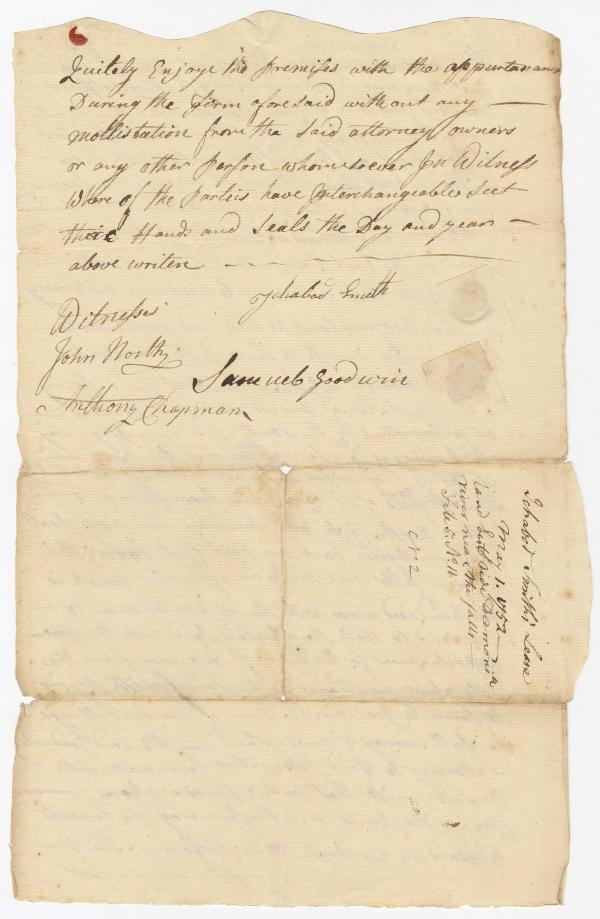 Quitely Enjoye the premises with the appurtanances
During the Term afore said without any —
mollistation from the said attorney owners
or any other Person whomsoever In Witness
Where of the Parteis have Interchangeable Sect
theie Hands and Seals the Day and year —
above writen
Ichabod Smith
Witnesses
John North
Samuel Goodwin
Anthony Chapman
Ichabod Smith's Lease
May 1. 1752
Land East side Damorisk
river near the falls
File 5. No. 11
No 2